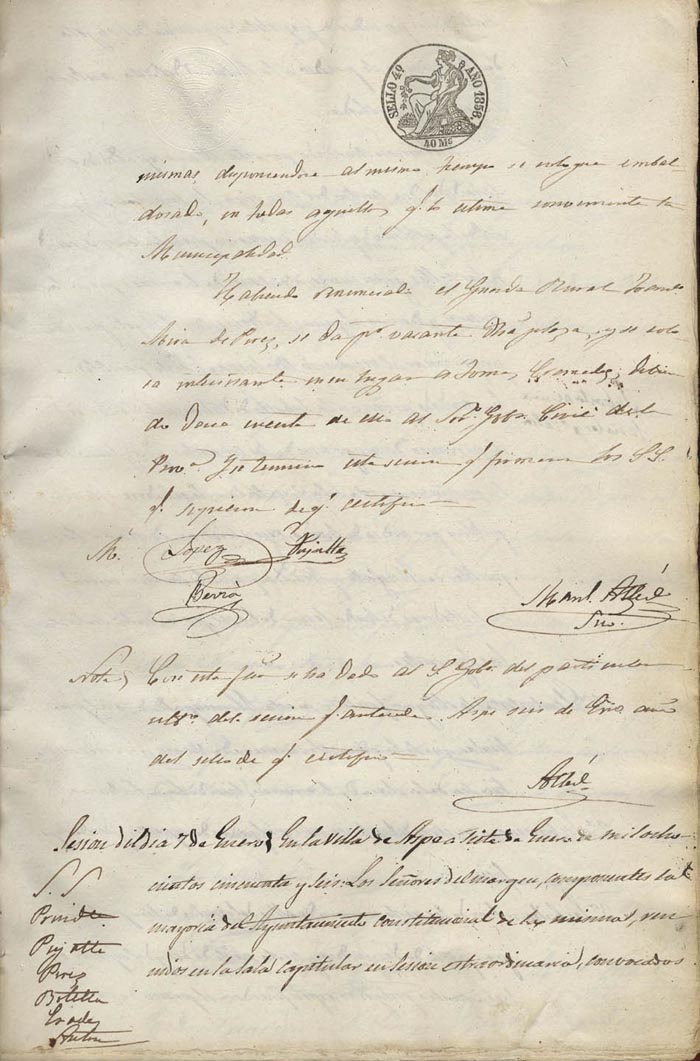 SELLO 4º AÑO 1856.
40 Ms
mismas, disponiendose al mismo tiempo se coloque embal-
dosado, en todas aquellas q.e lo estime conveniente la
Municipalidad.
Habiendo renunciado el Guarda Rural
Mira de Perez, se da p.r vacante dha plaza, y se colo-
ca interinamente en su lugar a Tomas debien-
do darse cuenta de ello al Sor. Gobr. Civil de la
Prova. Y se termina esta sesion q. firmaron los S.S.
q. supieron de q. certifico
M. Lopez Pujalte
Berrà
Manl. Alted
Srio.
Nota, Con esta fha se ha dado al S. Gobr. del particular
ultº. de la sesion q. antecede. Aspe seis de Enº. año
del sello de q. certifico
Alted
Sesion del dia 7 de Enero, En la Villa de Aspe a siete de Enero de mil ocho-
S. S cientos cincuenta y seis: Los Señores del margen, componentes la
Presidte. mayoria del Ayuntamiento constitucional de la misma, reu-
Pujalte nidos en la sala capitular en sesion extraordinaria, convocados
Perez
Botella